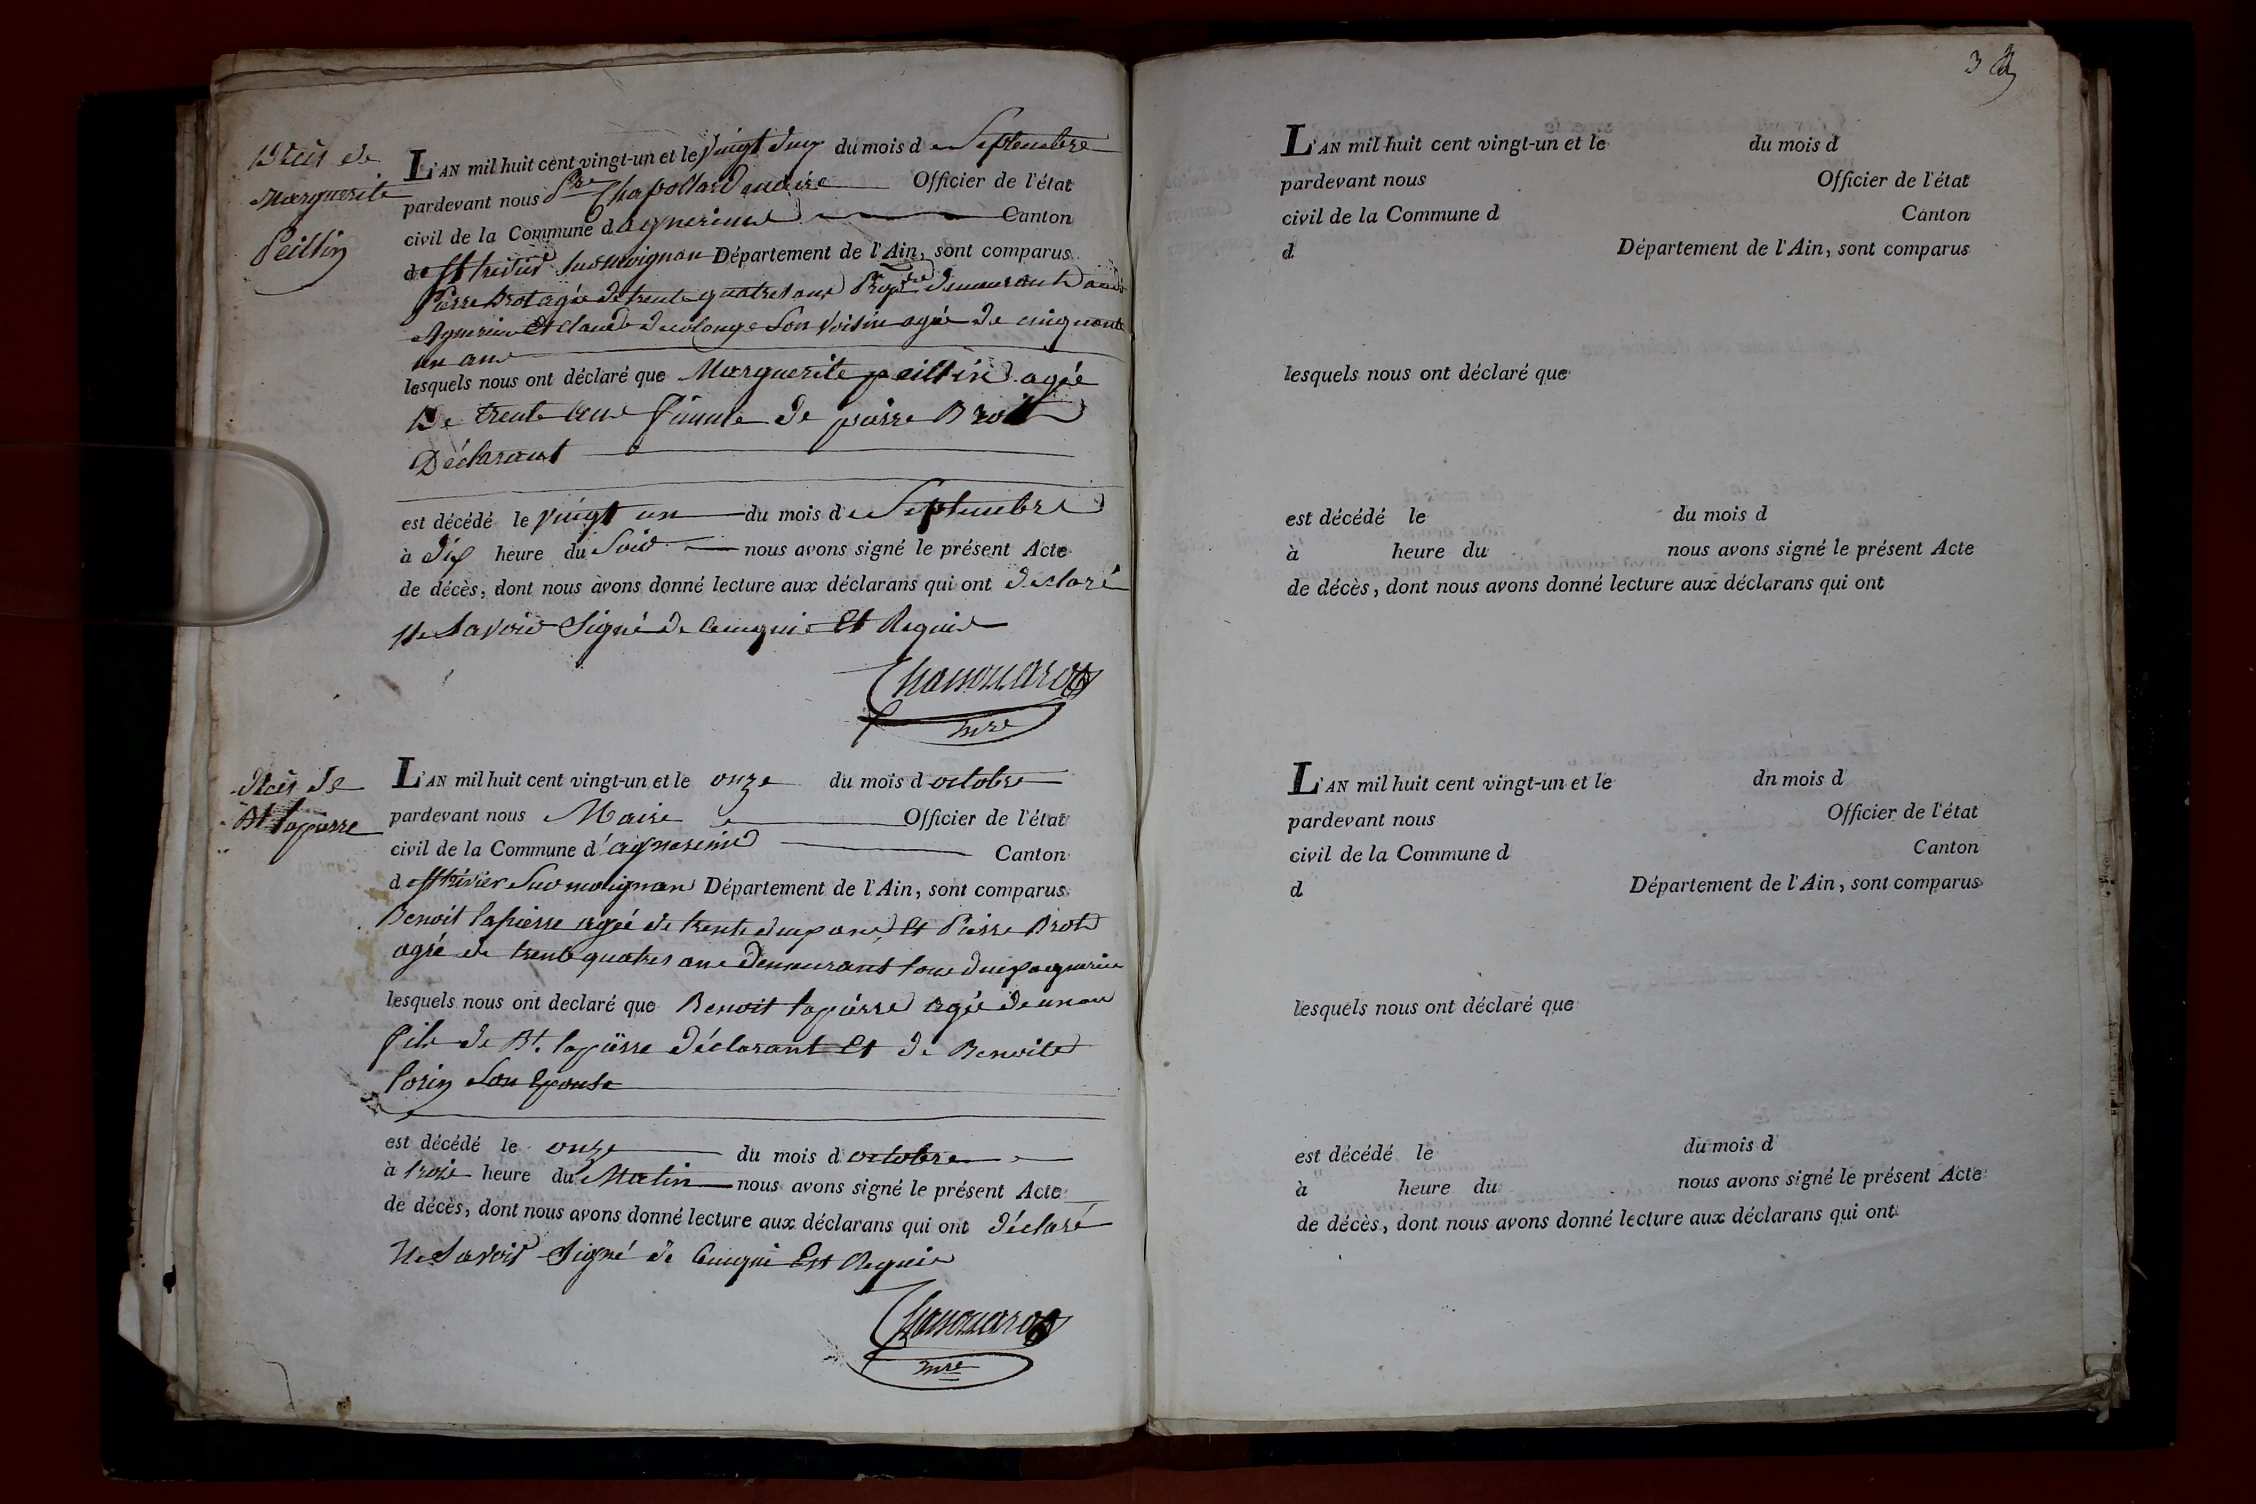 Décès de
Marguerite
Peillin
L'AN mil huit cent vingt-un et le vingt deux du mois de Septembre
pardevant nous Pre Chapollard maire Officier de l'état
civil de la Commune d agnereins Canton
de St trivier sur moignan Département de l'Ain, sont comparus
Pierre Brot agée de trente quatres ans Propre demeurant audt
Agnereins Et Claude decolonge Son Voisin agée de cinquante
un ans
lesquels nous ont déclaré que Marguerite peillin agée
De trente ans femme de pierre Brot
Déclarant
est décédé le vingt un du mois de Septembre
à dix heure du Soir nous avons signé le présent Acte
de décès, dont nous avons donné lecture aux déclarans qui ont declaré
Ne Savoir Signé de Ceuxqui Et Requis
mre
décès de
Bt lapierre
L'AN mil huit cent vingt-un et le onze du mois d octobre
pardevant nous Maire Officier de l'état
civil de la Commune d'agnereins Canton
d St trivier Sur moignan Département de l'Ain, sont comparus
Benoit lapierre agée de trente deux ans Et Pierre Brot
agée de trente quatres ans Demeurant tous deux agnereins
lesquels nous ont declaré que Benoit lapierre agée de un an
fils de Bt. lapierre déclarant Et de Benoite
lorin Son Epouse
est décédé le onze du mois d octobre
à trois heure du Matin nous avons signé le présent Acte
de décès, dont nous avons donné lecture aux déclarans qui ont déclaré
Ne Savoir Signé de Ceuxqui Est Requis
mre
3
L'AN mil huit cent vingt-un et le du mois d
pardevant nous Officier de l'état
civil de la Commune d Canton
d Département de l'Ain, sont comparus
lesquels nous ont déclaré que
est décédé le du mois d
à heure du nous avons signé le présent Acte
de décès, dont nous avons donné lecture aux déclarans qui ont
L'AN mil huit cent vingt-un et le dn mois d
pardevant nous Officier de l'état
civil de la Commune d Canton
d Département de l'Ain, sont comparus
lesquels nous ont déclaré que
est décédé le du mois d
à heure du nous avons signé le présent Acte
de décès, dont nous avons donné lecture aux déclarans qui ont